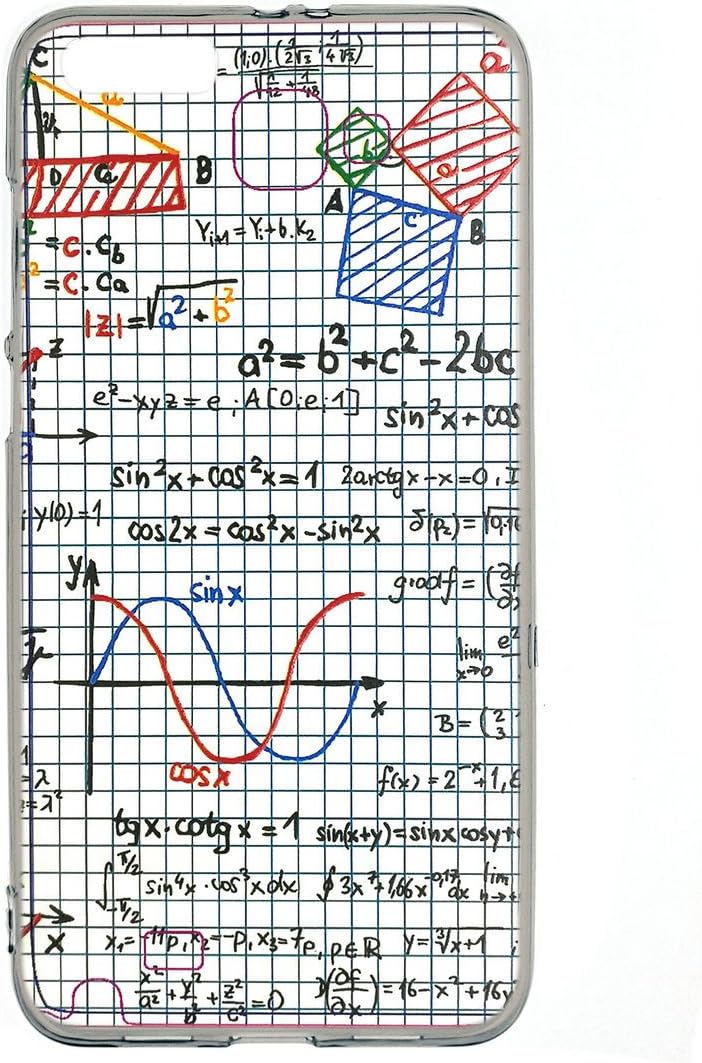 C
= (1;0)·(1/2√3 ; 1/4√3)
a
B
D Ca
b
a
a
A
c
B
= c·Cb
= c·Ca
Yi+1 = Yi+b·K2
|z| = √a²+b²
z
a² = b²+c²-2bc
e^z-xyz = e ; A[0;e;1]
sin²x+cos
sin²x+cos²x=1
2arctgx-x=0, I
; y(0)=1
cos2x = cos²x-sin²x
δ(p₂)=√0,16
y
sinx
gradf = (∂f
lim x→0 e²
x
B = (2 3
cosx
f(x) = 2^-x+1, ε
= λ
= λ²
tgx·cotgx = 1
sin(x+y)=sinx cosy+
∫-π/2 π/2 sin⁴x·cos³xdx
∮3x⁷+1,66x^-0,17 dx
lim
x
x₁=-11p, x₂=-p, x₃=7p, p∈R
y=∛x+1 ;
x²/a²+y²/b²+z²/c²=0
(∂f/∂x)=16-x²+16y